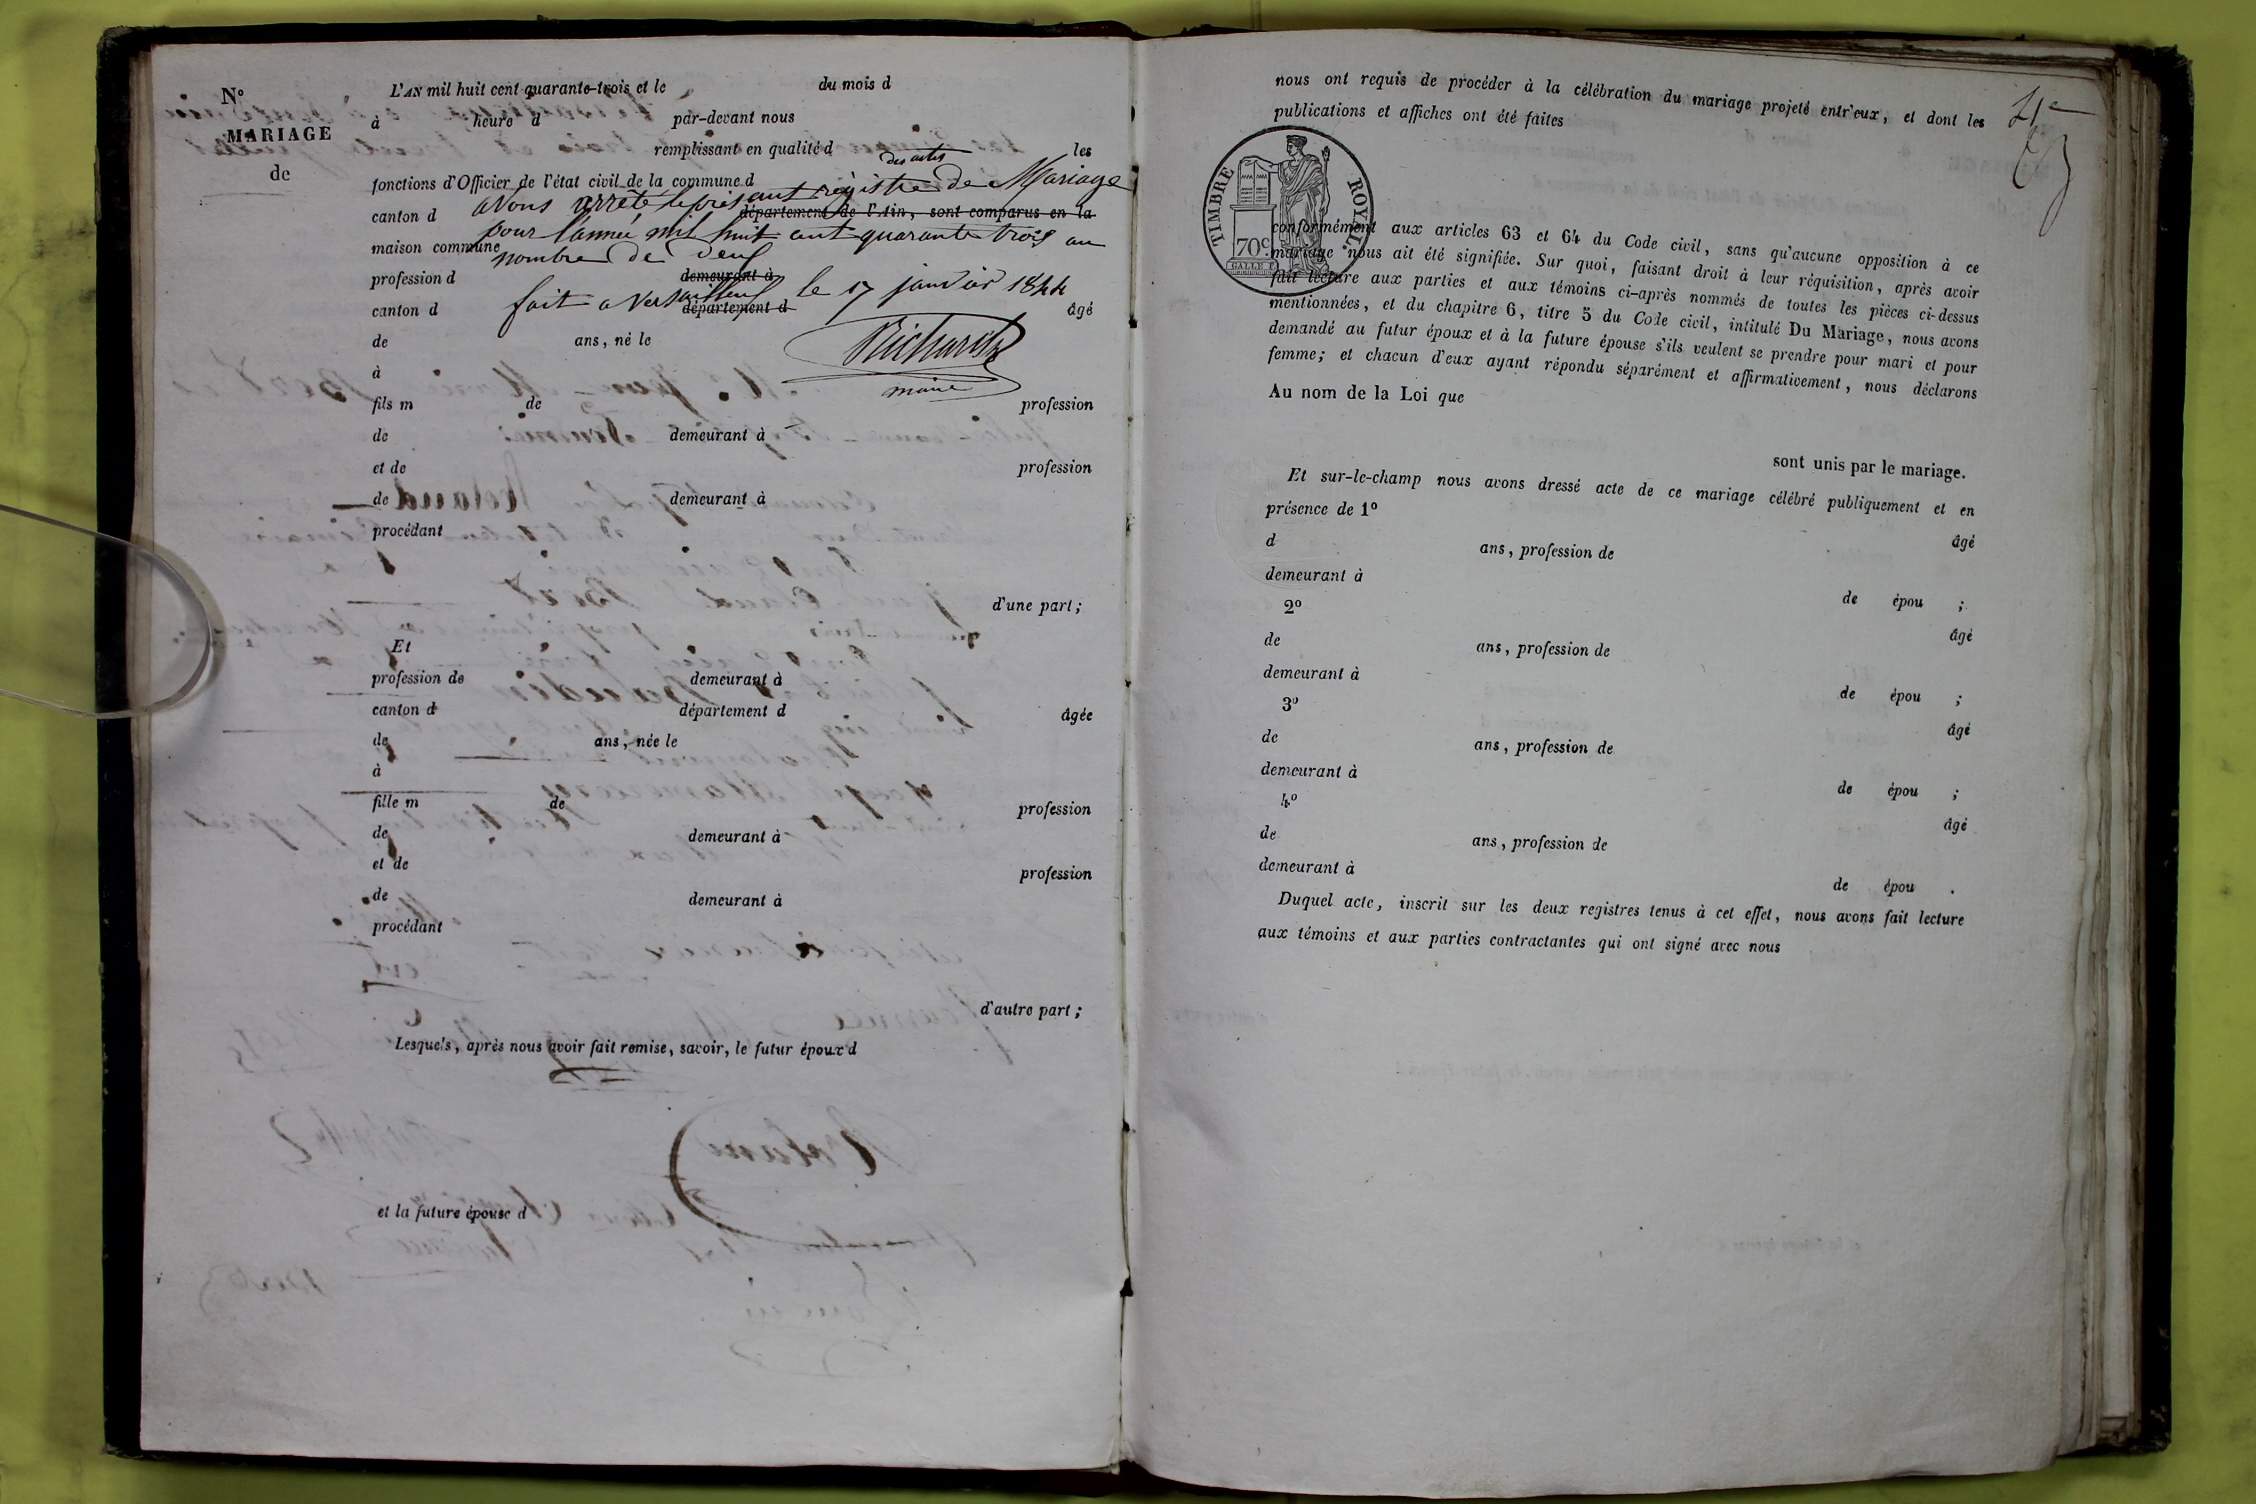 N°
MARIAGE
de
L'AN mil huit cent quarante-trois et le du mois d
à heure d par-devant nous
remplissant en qualité d les
des actes
fonctions d'Officier de l'état civil de la commune d
avons arrêté le présent registre de Mariage
canton d département de l'Ain, sont comparus en la
pour l'année mil huit cent quarante trois au
maison commune
nombre de deux
profession d demeurant à
fait a Versailleux le 17 janvier 1844
canton d département d âgé
de ans, né le
Richard
à
maire
fils m de profession
de demeurant à
et de profession
de demeurant à
procédant
d'une part;
Et
profession de demeurant à
canton d département d âgée
de ans, née le
à
fille m de profession
de demeurant à
et de profession
de demeurant à
procédant
d'autre part;
Lesquels, après nous avoir fait remise, savoir, le futur époux d
et la future épouse d
nous ont requis de procéder à la célébration du mariage projeté entr'eux, et dont les
publications et affiches ont été faites
TIMBRE ROYAL.
70c
conformément aux articles 63 et 64 du Code civil, sans qu'aucune opposition à ce
mariage nous ait été signifiée. Sur quoi, faisant droit à leur réquisition, après avoir
fait lecture aux parties et aux témoins ci-après nommés de toutes les pièces ci-dessus
mentionnées, et du chapitre 6, titre 5 du Code civil, intitulé Du Mariage, nous avons
demandé au futur époux et à la future épouse s'ils veulent se prendre pour mari et pour
femme; et chacun d'eux ayant répondu séparément et affirmativement, nous déclarons
Au nom de la Loi que
sont unis par le mariage.
Et sur-le-champ nous avons dressé acte de ce mariage célébré publiquement et en
présence de 1°
d ans, profession de âgé
demeurant à
2° de épou ;
de ans, profession de âgé
demeurant à
3° de épou ;
de ans, profession de âgé
demeurant à
4° de épou ;
de ans, profession de âgé
demeurant à
de épou .
Duquel acte, inscrit sur les deux registres tenus à cet effet, nous avons fait lecture
aux témoins et aux parties contractantes qui ont signé avec nous